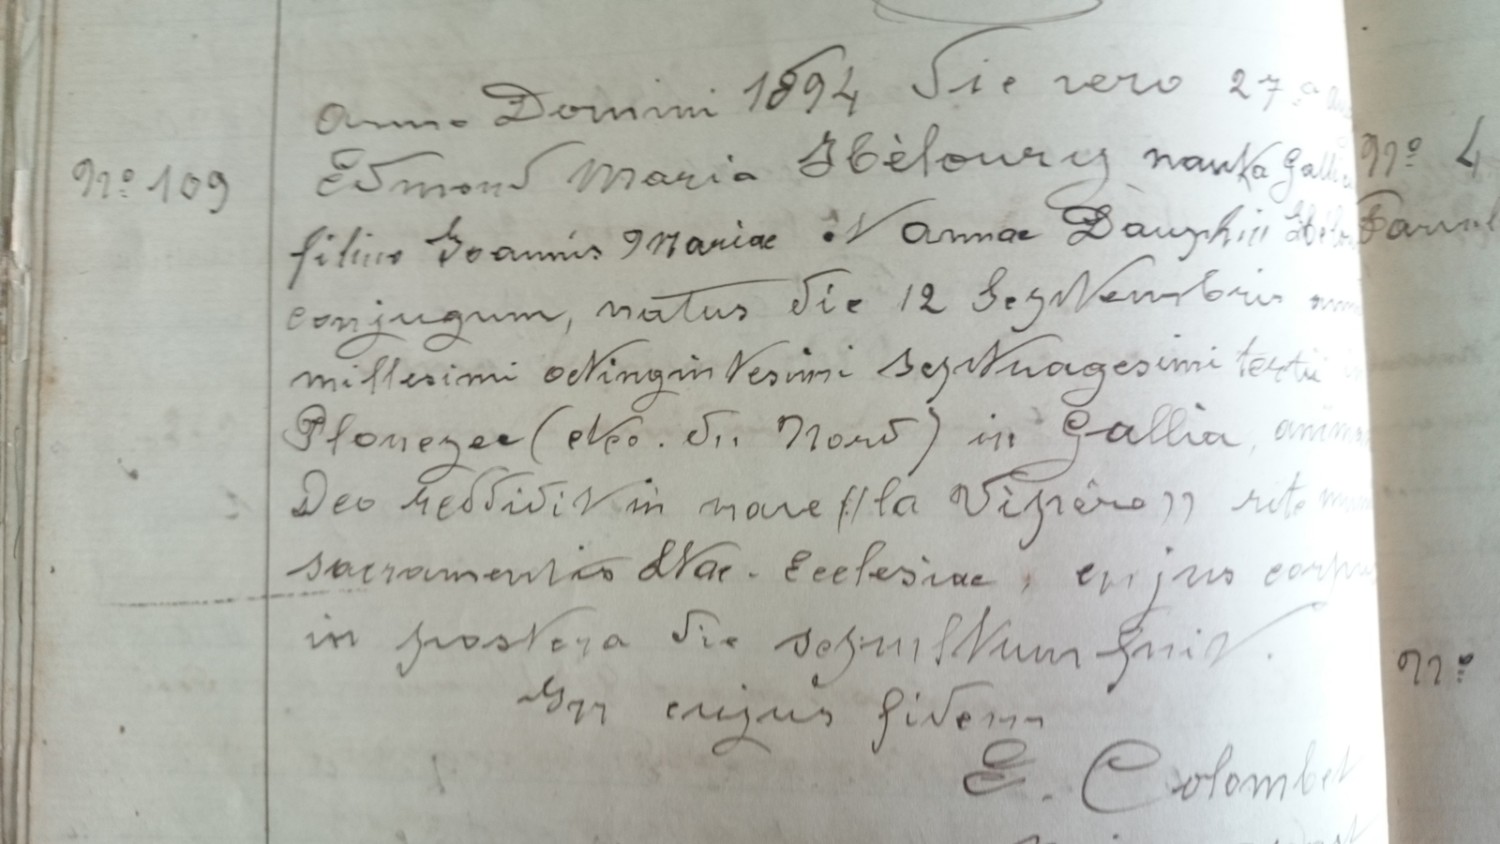 Anno Domini 1894 die vero 27ª
Nº 109
Edmond Maria Héloury nauta Gallic
Nº 4
filius Joannis Mariae et Annae Dauphin Hélo
conjugum, natus die 12 Septembris
millesimi octingintesimi septuagesimi tertii in
Plouezec (Côtes. du Nord) in Gallia, anima
Deo reddidit in nave "la Vipère" rite
sacramentis Stae. Ecclesiae, cujus corpus
in postera die sepultum fuit.
Nº
In cujus fidem
E. Colombet